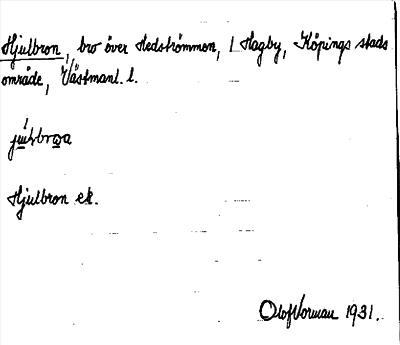 Hjulbron, bro över Hedströmmen, i Hagby, Köpings stads
område, Västmanl. l.
Hjulbron ek.
Olof Norman 1931.